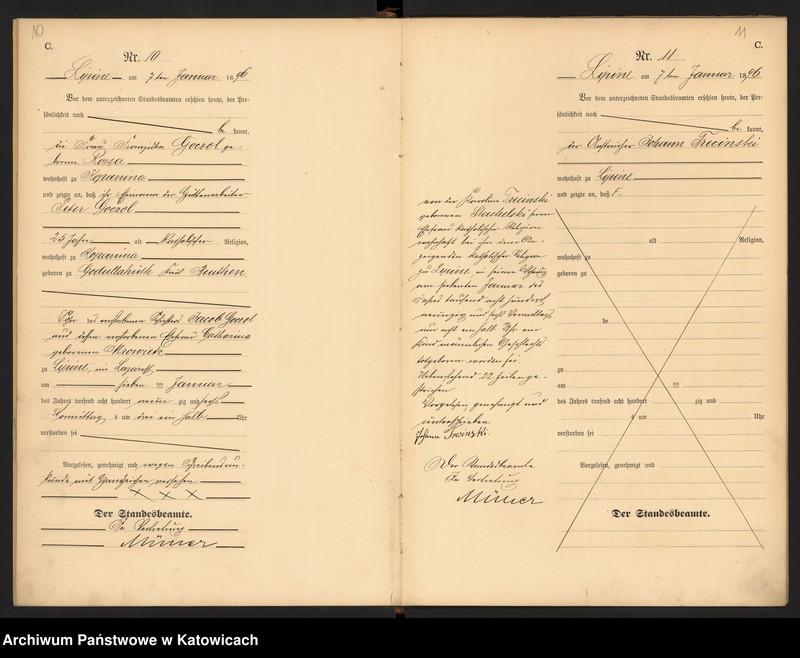 10
C.
Nr. 10
Lipine am 7ten Januar 1896
Vor dem unterzeichneten Standesbeamten erschien heute, der Per-
sönlichkeit nach
be kannt,
die Frau Franziska Goczol ge-
borene Kossa
wohnhaft zu Kopanina
und zeigte an, daß ihr Ehemann der Hüttenarbeiter
Peter Goczol
25 Jahre alt katholischer Religion,
wohnhaft zu Kopanina
geboren zu Godullahütte Kreis Beuthen
Sohn des verstorbenen Jacob Goczol
und dessen verstorbenen Ehefrau Catharina
geborenen Mrowietz
zu Lipine, im Lazareth
am sieben ten Januar
des Jahres tausend acht hundert neunzig und sechs
Vormittags um drei ein halb Uhr
verstorben sei
Vorgelesen, genehmigt und wegen Schreibensun-
kunde mit Handzeichen versehen
X X X
Der Standesbeamte.
In Vertretung
11
C.
Nr. 11
Lipine am 7ten Januar 1896
Vor dem unterzeichneten Standesbeamten erschien heute, der Per-
sönlichkeit nach
be kannt,
der Johann Trecinski
wohnhaft zu Lipine
und zeigte an, daß
alt Religion,
wohnhaft zu
geboren zu
de
zu
am ten
des Jahres tausend acht hundert zig und
um Uhr
verstorben sei
Vorgelesen, genehmigt und
Der Standesbeamte.
von der Karoline Trecinski
geborenen Stachelski seiner
Ehefrau katholischer Religion
wohnhaft bei ihm dem An-
zeigenden katholischer Religion
zu Lipine in seiner Wohnung
am siebenten Januar des
Jahres tausend acht hundert
neunzig und sechs Vormittags
um acht ein halb Uhr ein
Kind männlichen Geschlechts
totgeboren worden sei.
Nebenstehend 22 Zeilen ge-
strichen
Vorgelesen genehmigt und
unterschrieben
Johann Trecinski
Der Standesbeamte
In Vertretung
Archiwum Państwowe w Katowicach